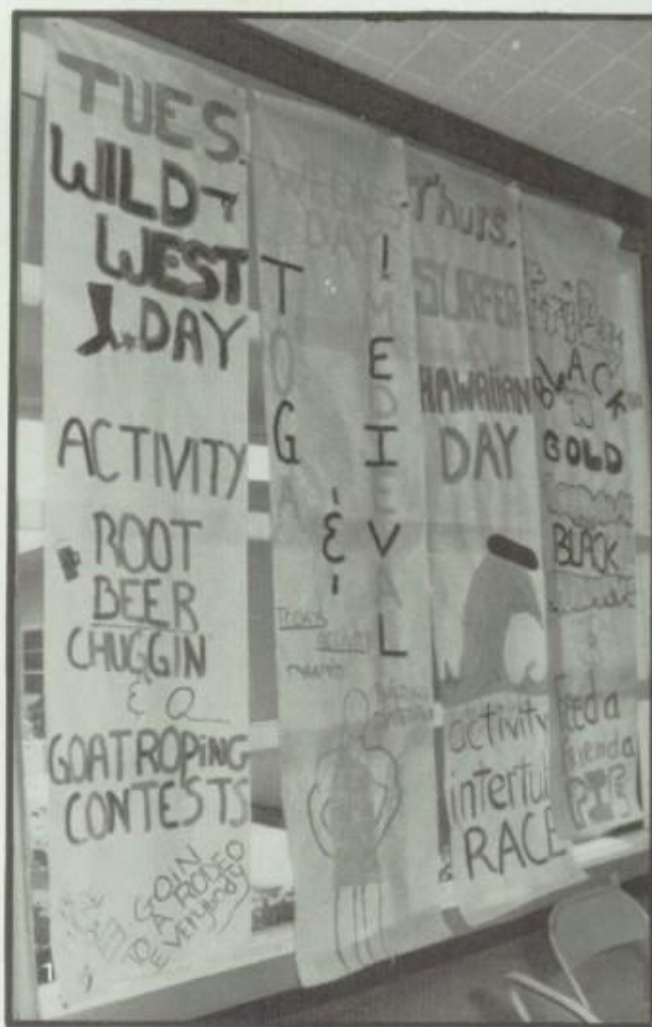 TUES.
WILD
WEST
DAY
ACTIVITY
ROOT
BEER
CHUGGIN
& a
GOAT ROPING
CONTESTS
GOIN
TO A RODEO
EVERYBODY
WEDNES
DAY!
TOGA
&
MEDIEVAL
TODAYS
ACTIVITY
Thurs.
SURFER
&
HAWAIIAN
DAY
activity
intertu
RACE
BLACK
GOLD
BLACK
Feed a
friend a
PIE
1